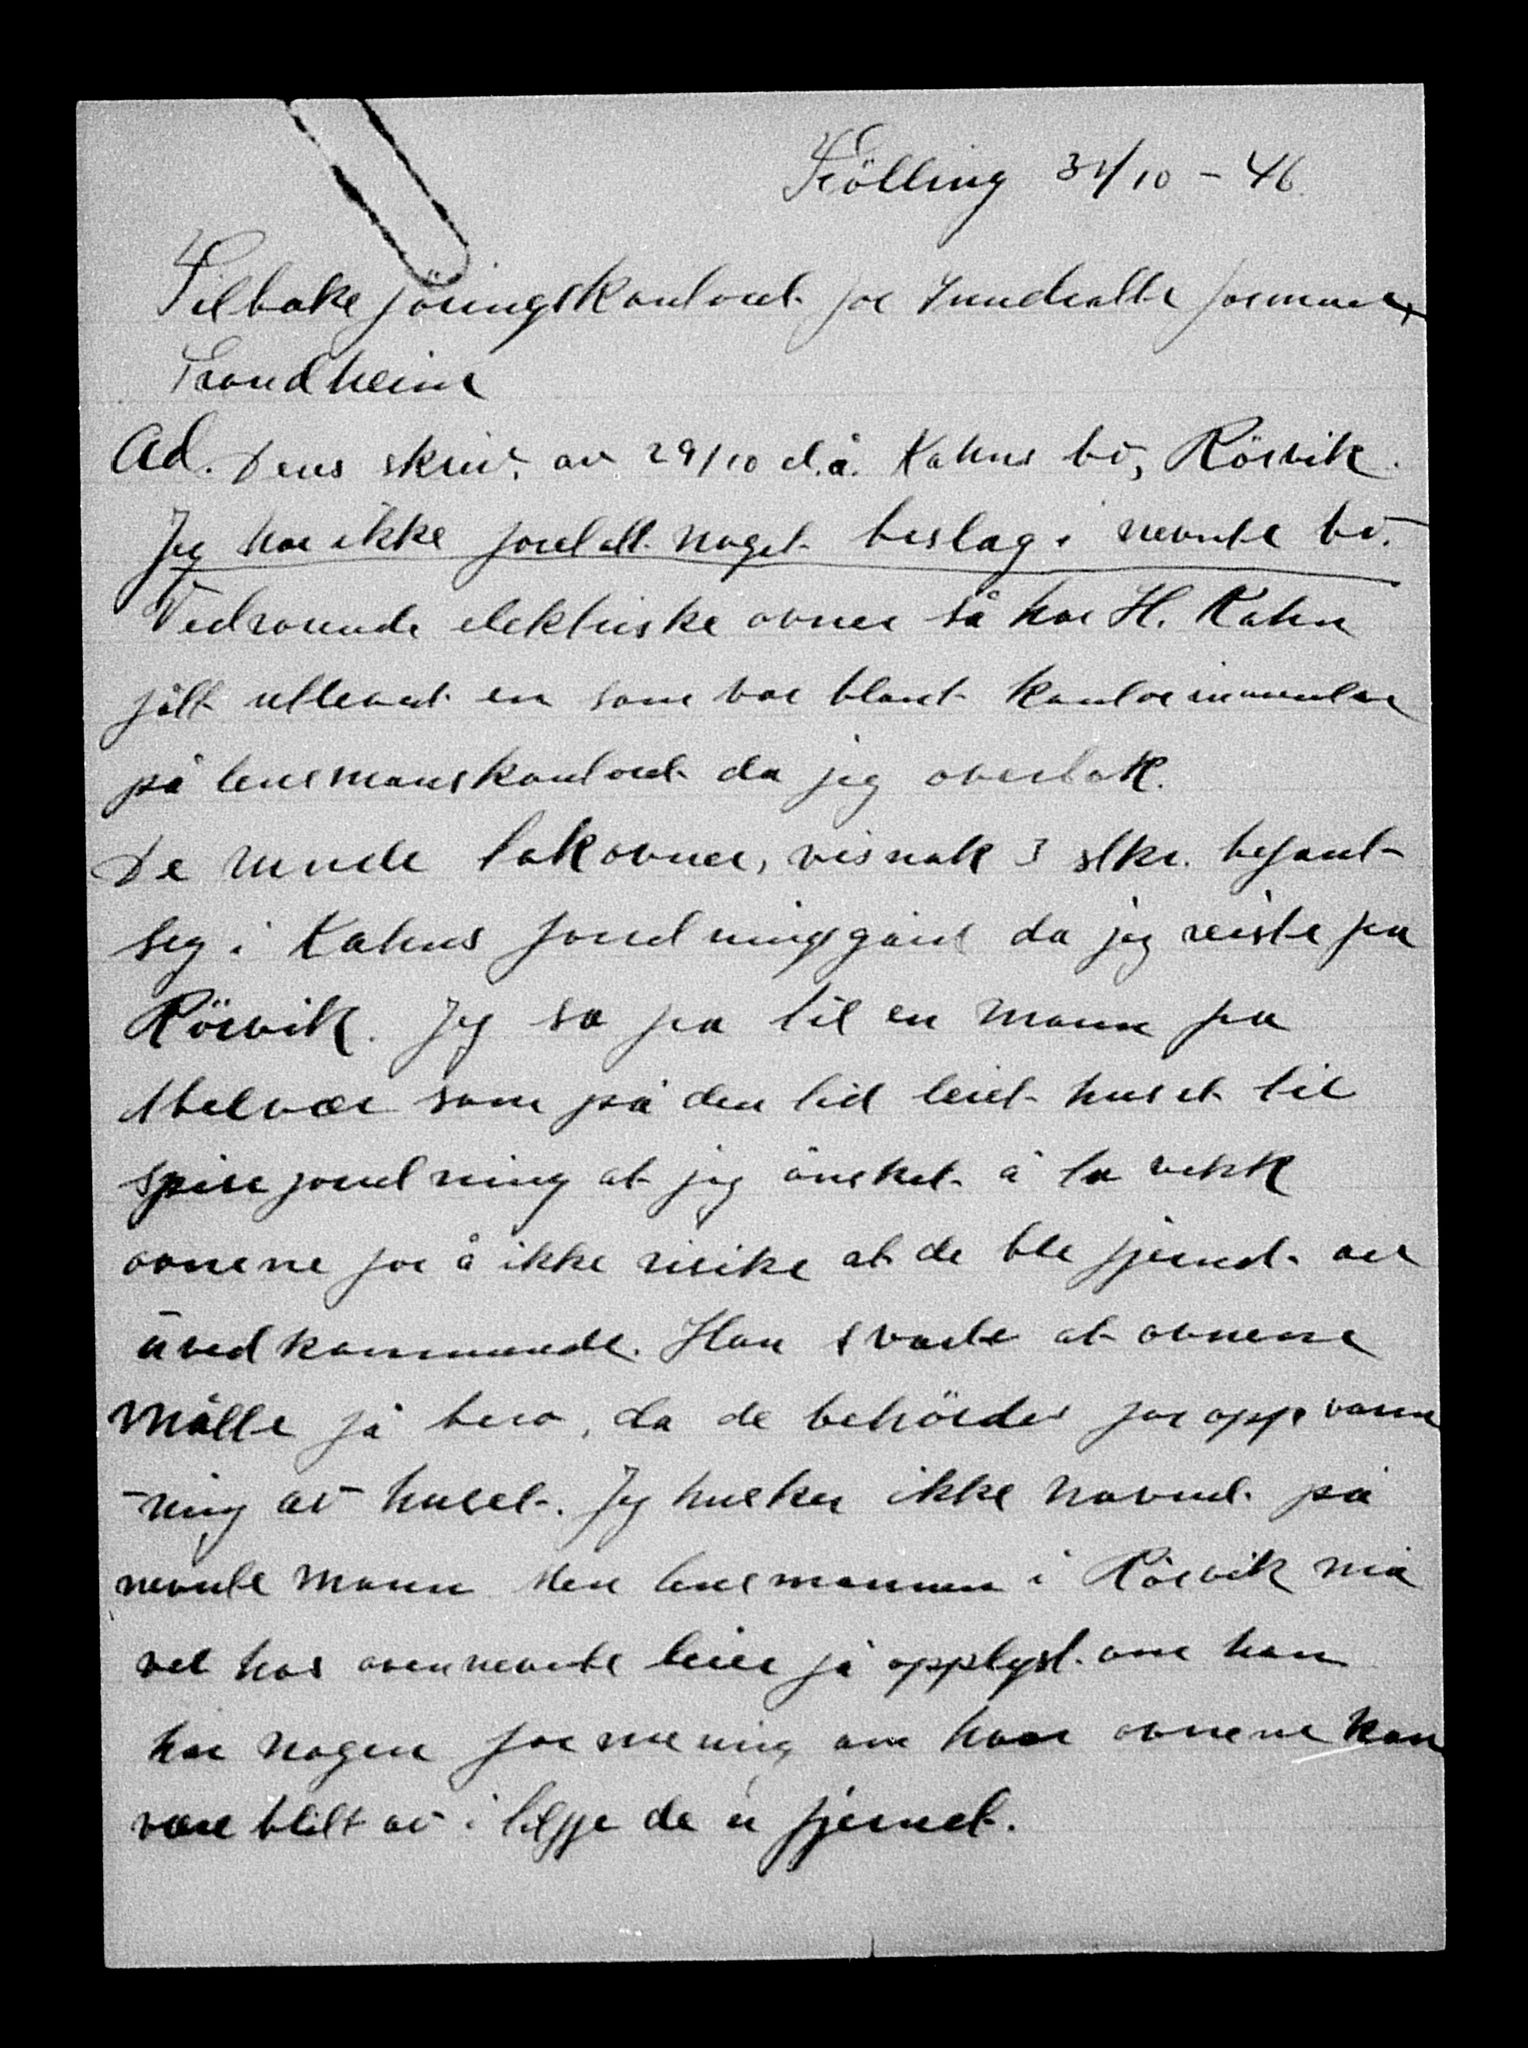 Følling 31/10 - 46.
Tilbakeföringskontoret for Inndratte formuer,
Trondheim
Ad. Deres skriv. av 29/10 d.å. Kahns bo, Rörvik.
Jeg har ikke foretatt noget beslag i nevnte bo.
Vedrörende elektriske ovner så har H. Kahn
fått utlevert en som var blant kontorinventar
på lensmanskontoret da jeg overtok.
De runde takovner, visnok 3 stkr. befant
seg i Kahns forretningsgård da jeg reiste fra
Rörvik. Jeg sa fra til en mann fra
Abelvær som på den tid leiet huset til
spiseforretning at jeg önsket å ta vekk
ovnene for å ikke risike at de ble fjernet av
uvedkommende. Han svarte at ovnene
måtte få bero, da de behövdes for oppvarm
-ning av huset. Jeg husker ikke navnet på
nevnte mann men lensmannen i Rörvik må
vel hos ovennevnte leier få opplyst om han
har nogen formening om hvor ovnene kan
være blitt av i tilfje de er fjernet.